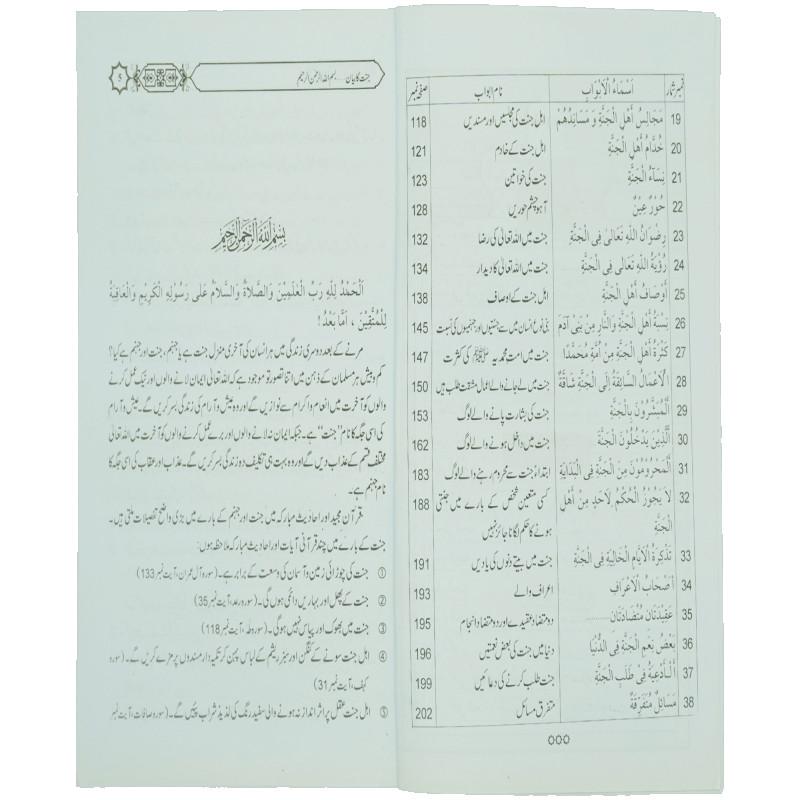 نمبر شمار اَسْمَاءُ الْاَبْوَابِ نام ابواب صفحہ نمبر
19 مَجَالِسُ اَهْلِ الْجَنَّةِ وَ مَسَانِدُهُمْ اہل جنت کی مجلسیں اور مسندیں 118
20 خُدَّامُ اَهْلِ الْجَنَّةِ اہل جنت کے خادم 121
21 نِسَآءُ الْجَنَّةِ جنت کی خواتین 123
22 حُوْرٌ عِيْنٌ آہو چشم حوریں 128
23 رِضْوَانُ اللهِ تَعَالٰى فِى الْجَنَّةِ جنت میں اللہ تعالیٰ کی رضا 132
24 رُؤْيَةُ اللهِ تَعَالٰى فِى الْجَنَّةِ جنت میں اللہ تعالیٰ کا دیدار 134
25 اَوْصَافُ اَهْلِ الْجَنَّةِ اہل جنت کے اوصاف 138
26 نِسْبَةُ اَهْلِ الْجَنَّةِ وَالنَّارِ مِنْ بَنِىْ آدَمَ بنی نوع انسان میں سے جنتیوں اور جہنمیوں کی نسبت 145
27 كَثْرَةُ اَهْلِ الْجَنَّةِ مِنْ اُمَّةِ مُحَمَّدٍ جنت میں امت محمدیہ ﷺ کی کثرت 147
28 اَلْاَعْمَالُ السَّائِقَةُ اِلَى الْجَنَّةِ شَاقَّةٌ جنت میں لے جانے والے اعمال مشقت طلب ہیں 150
29 اَلْمُبَشَّرُوْنَ بِالْجَنَّةِ جنت کی بشارت پانے والے لوگ 153
30 اَلَّذِيْنَ يَدْخُلُوْنَ الْجَنَّةَ جنت میں داخل ہونے والے لوگ 162
31 اَلْمَحْرُوْمُوْنَ مِنَ الْجَنَّةِ فِى الْبِدَايَةِ ابتداءً جنت سے محروم رہنے والے لوگ 183
32 لَا يَجُوْزُ الْحُكْمُ لِاَحَدٍ مِنْ اَهْلِ کسی متعین شخص کے بارے میں جنتی 188
الْجَنَّةِ ہونے کا حکم لگانا جائز نہیں
33 تَذْكِرَةُ الْاَيَّامِ الْخَالِيَةِ فِى الْجَنَّةِ جنت میں بیتے دنوں کی یادیں 191
34 اَصْحَابُ الْاَعْرَافِ اعراف والے 193
35 عَقِيْدَتَانِ مُتَضَادَتَانِ....... دو متضاد عقیدے اور دو متضاد انجام 195
36 بَعْضُ نِعَمِ الْجَنَّةِ فِى الدُّنْيَا دنیا میں جنت کی بعض نعمتیں 196
37 اَلْاَدْعِيَةُ فِىْ طَلَبِ الْجَنَّةِ جنت طلب کرنے کی دعائیں 199
38 مَسَائِلُ مُتَفَرِّقَةٌ متفرق مسائل 202
جنت کا بیان.... بسم اللہ الرحمٰن الرحیم 5
بِسْمِ اللهِ الرَّحْمٰنِ الرَّحِيْمِ
اَلْحَمْدُ لِلّٰهِ رَبِّ الْعٰلَمِيْنَ وَالصَّلَاةُ وَالسَّلَامُ عَلٰى رَسُوْلِهِ الْكَرِيْمِ وَالْعَاقِبَةُ
لِلْمُتَّقِيْنَ ، اَمَّا بَعْدُ !
مرنے کے بعد دوسری زندگی میں ہر انسان کی آخری منزل جنت ہے یا جہنم ، جنت اور جہنم ہے کیا؟
کم و بیش ہر مسلمان کے ذہن میں اتنا تصور تو موجود ہے کہ اللہ تعالیٰ ایمان لانے والوں اور نیک عمل کرنے
والوں کو آخرت میں انعام و اکرام سے نوازیں گے اور وہ عیش و آرام کی زندگی بسر کریں گے۔ عیش و آرام
کی اسی جگہ کا نام "جنت" ہے۔ جبکہ ایمان نہ لانے والوں اور برے عمل کرنے والوں کو آخرت میں اللہ تعالیٰ
مختلف قسم کے عذاب دیں گے اور وہ بہت ہی تکلیف دہ زندگی بسر کریں گے۔ عذاب اور عقاب کی اسی جگہ کا
نام جہنم ہے۔
قرآن مجید اور احادیث مبارکہ میں جنت اور جہنم کے بارے میں بڑی واضح تفصیلات ملتی ہیں۔
جنت کے بارے میں چند قرآنی آیات اور احادیث مبارکہ ملاحظہ ہوں:
① جنت کی چوڑائی زمین و آسمان کی وسعت کے برابر ہے۔ (سورہ آل عمران، آیت نمبر 133)
② جنت کے پھل اور بہاریں دائمی ہوں گی۔ (سورہ رعد، آیت نمبر 35)
③ جنت میں بھوک اور پیاس نہیں ہوگی۔ (سورہ طہ، آیت نمبر 118)
④ اہل جنت سونے کے کنگن اور سبز ریشم کے لباس پہن کر تکیہ دار مسندوں پر مزے کریں گے۔ (سورہ
کہف، آیت نمبر 31)
⑤ اہل جنت عقل پر اثر انداز نہ ہونے والی سفید رنگ کی لذیذ شراب پئیں گے۔ (سورہ صافات، آیت نمبر